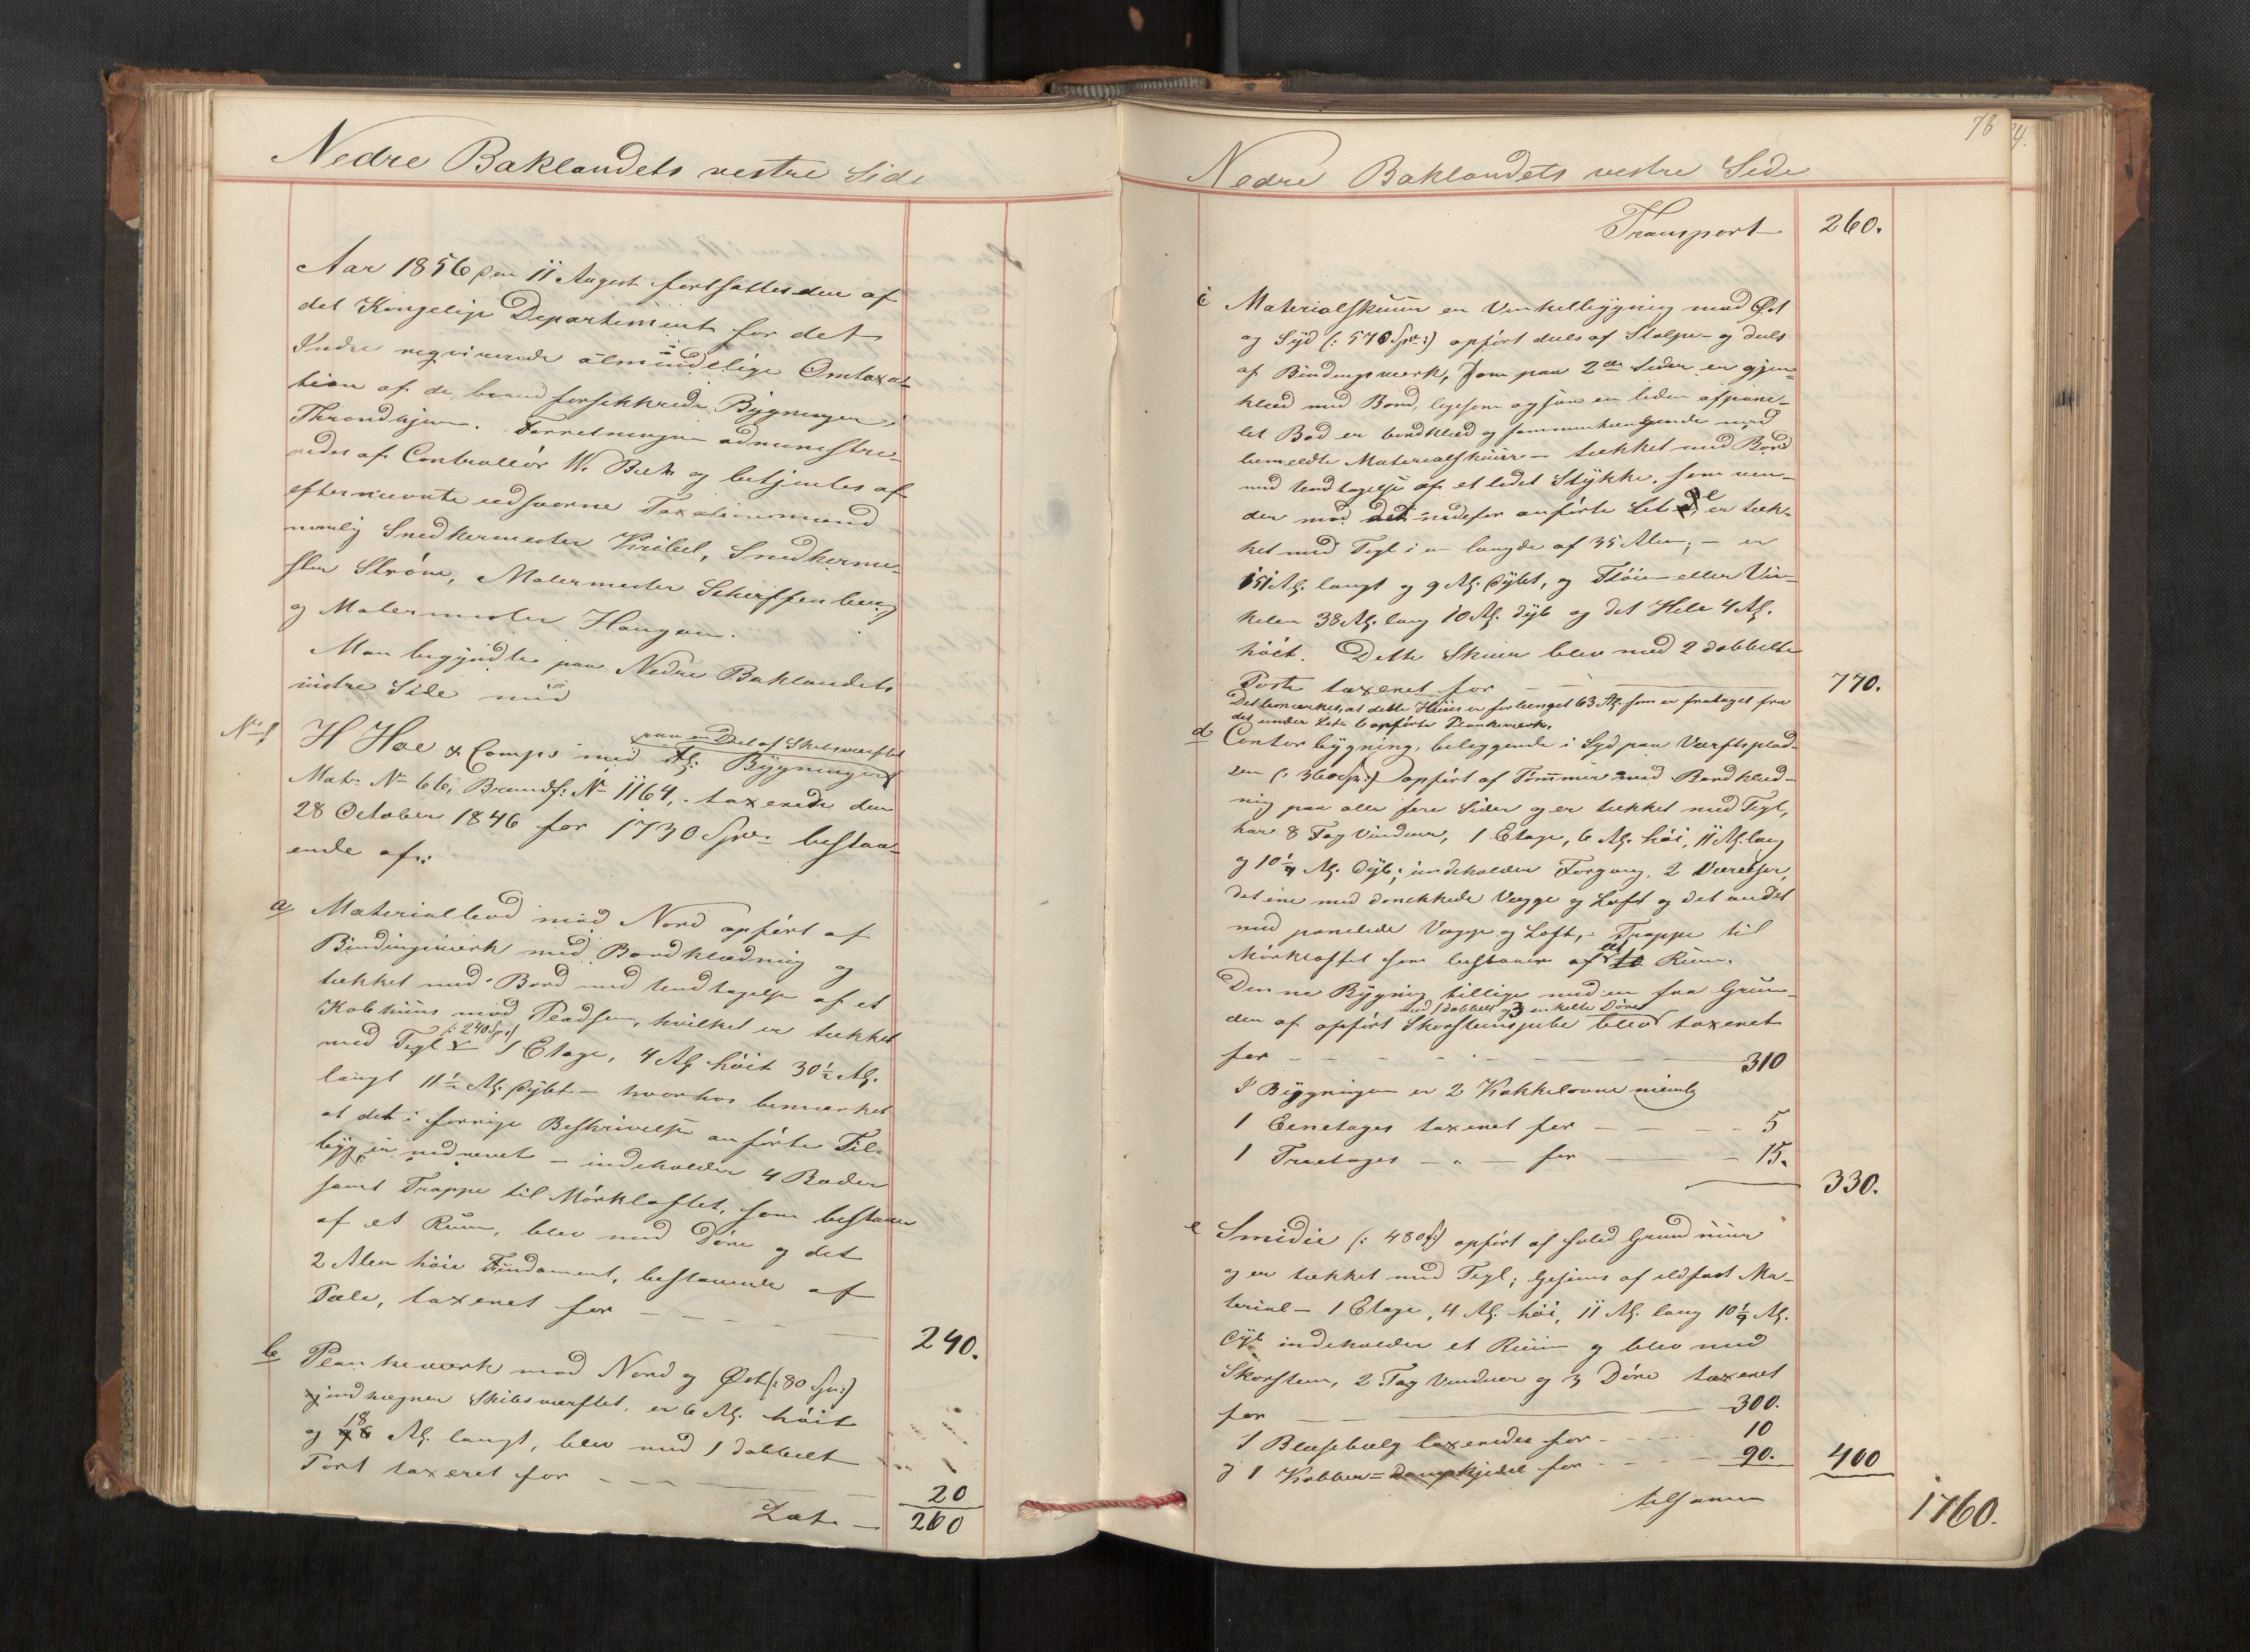 Nedre Baklandets vestre Side
Aar 1856 den 11 August fortsattes den af
det Kongelige Departement for det
Indre requirerede almindelige Omtaxa-
tion af de brandforsikkrede Bygninger i
Throndhjem. Forretningen administre-
redes af Controlleur W. Beck og betjentes af
efternævnte eedsvorne Taxationsmænd
nemlig Snedkermester Kribel, Snedkerme-
ster Ström, Malermester Scheffenberg
og Malermester Haugan.
Man begyndte paa Nedre Baklandets
vestre Side med
No 1
H Hoe & Comps med tlh: Bygninger
paa en Deel af Skibsværftet
Mat: No 66, Brandf: No 1164, taxerede den
28 October 1846 for 1730 Spd: bestaa-
ende af:
a Materialbod mod Nord opført af
Bindingsværk med Bordklædning og
tækket med Bord med Undtagelse af et
Kobhuus mod Pladsen, hvilket er tækket
(: 240 Spd:)
med Tegl 1 Etage, 4 Al. höit 30½ Al.
langt 11½ Al. dybt - hvorhos bemærkes
at det i forrige Beskrivelse anförte Til-
byg er nedrevet - indeholder 4 Boder
samt Trappe til Mörkloftet, som bestaaer
af et Rum, blev med Döre og det
2 Alen höie Fundament, bestaaende af
Pæle, taxeret for — 240.
b Plankeværk mod Nord og Öst (: 80 Spd:)
indhegner Skibsværftet, er 6 Al. höit
og 18 Al. langt, blev med 1 dobbelt
Port taxeret for — 20
Lat. — 260
76
Nedre Baklandets vestre Side
Transport 260.
c Materialskuur en Vinkelbygning mod Öst
og Syd (: 570 Spd:) opfört deels af Stolper og deels
af Bindingsværk, som paa 2de Sider er gjen-
klæd med Bord, ligesom ogsaa en liden afpane-
let Bod er bordklæd og sammenhængende med
bemeldte Materialskuur - tækket med Bord
med Undtagelse af et lidet Stykke, som ven-
der mod det nedefor anförte Lit. e, er tæk-
ket med Tegl i en længde af 35 Alen; - er
151 Al. langt og 9 Al. dybt, og Flöien eller Vin-
kelen 38 Al. lang 10 Al. dyb og det Hele 4 Al.
höit. Dette Skuur blev med 2 dobbelte
Porte taxeret for — 770.
Det bemærkes, at dette Huus er forlænget 63 Al. som er frataget fra
det under Lit. b opförte Plankeværk.
d Contorbygning, beliggende i Syd paa Værftsplad-
sen (: 360 Spd:) opfört af Tömmer med Bordklæd-
ning paa alle fire Sider og er tækket med Tegl,
har 8 Fag Vinduer, 1 Etage, 6 Al. höi, 11 Al. lang
og 10¼ Al. dyb; indeholder Forgang, 2 Værelser,
det ene med donekkede Vægge og Loft og det andet
med panelede Vægge og Loft, - Trappe til
Mörkloftet som bestaaer af et Rum.
Denne Bygning tillige med en fra Grun-
med 1 dobbelt og 3 enkelte Döre
den af opfört Skorsteenspibe blev taxeret
for — 310
I Bygningen er 2 Kakkelovne nemlig
1 Eenetages taxeret for — 5
1 Treetages — " — for — 15.
330.
e Smidie (: 480 f:) opfört af solid Grundmuur
og er tækket med Tegl; Gesims af ildfast Ma-
terial - 1 Etage, 4 Al. höi, 11 Al. lang 10¼ Al.
dyb indeholder et Rum og blev med
Skorsteen, 2 Fag Vinduer og 3 Döre taxeret
for — 300.
1 Blæsebælg taxeredes for — 10
og 1 Kobber= Dampkjedel for — 90. 400
tilsamen 1760.